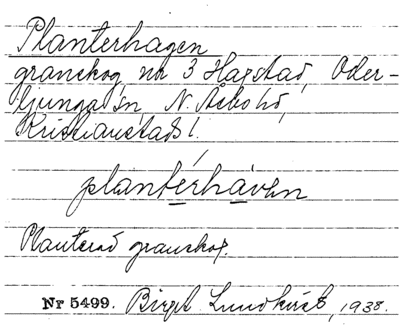 Planterhagen
granskog nr 3 Hagstad, Oder-
ljunga sn N. Åsbo hd,
Kristianstads l.
plantérhàvən
Planterad granskog.
Nr 5499. Birgit Lundkvist, 1938.